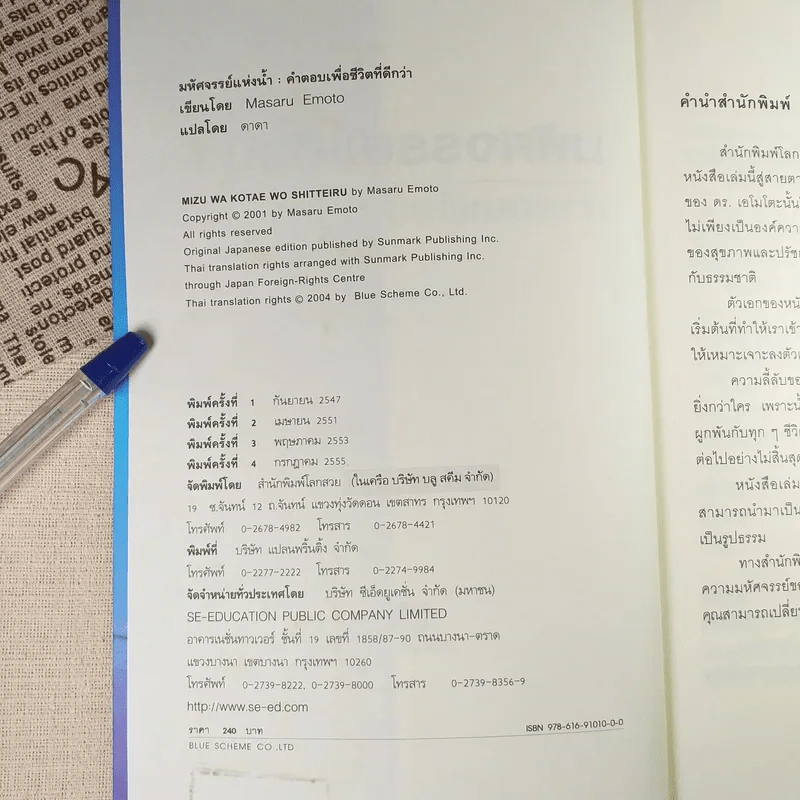 มหัศจรรย์แห่งน้ำ : คำตอบเพื่อชีวิตที่ดีกว่า
เขียนโดย Masaru Emoto
แปลโดย ดาดา
MIZU WA KOTAE WO SHITTEIRU by Masaru Emoto
Copyright © 2001 by Masaru Emoto
All rights reserved
Original Japanese edition published by Sunmark Publishing Inc.
Thai translation rights arranged with Sunmark Publishing Inc.
through Japan Foreign-Rights Centre
Thai translation rights © 2004 by Blue Scheme Co., Ltd.
พิมพ์ครั้งที่ 1 กันยายน 2547
พิมพ์ครั้งที่ 2 เมษายน 2551
พิมพ์ครั้งที่ 3 พฤษภาคม 2553
พิมพ์ครั้งที่ 4 กรกฎาคม 2555
จัดพิมพ์โดย สำนักพิมพ์โลกสวย (ในเครือ บริษัท บลู สคีม จำกัด)
19 ซ.จันทน์ 12 ถ.จันทน์ แขวงทุ่งวัดดอน เขตสาทร กรุงเทพฯ 10120
โทรศัพท์ 0-2678-4982 โทรสาร 0-2678-4421
พิมพ์ที่ บริษัท แปลนพริ้นติ้ง จำกัด
โทรศัพท์ 0-2277-2222 โทรสาร 0-2274-9984
จัดจำหน่ายทั่วประเทศโดย บริษัท ซีเอ็ดยูเคชั่น จำกัด (มหาชน)
SE-EDUCATION PUBLIC COMPANY LIMITED
อาคารเนชั่นทาวเวอร์ ชั้นที่ 19 เลขที่ 1858/87-90 ถนนบางนา-ตราด
แขวงบางนา เขตบางนา กรุงเทพฯ 10260
โทรศัพท์ 0-2739-8222, 0-2739-8000 โทรสาร 0-2739-8356-9
http://www.se-ed.com
ราคา 240 บาท ISBN 978-616-91010-0-0
BLUE SCHEME CO.,LTD
คำนำสำนักพิมพ์
สำนักพิมพ์โลก
หนังสือเล่มนี้สู่สายตา
ของ ดร. เอโมโตะนั้น
ไม่เพียงเป็นองค์ความ
ของสุขภาพและปรัช
กับธรรมชาติ
ตัวเอกของหนั
เริ่มต้นที่ทำให้เราเข้า
ให้เหมาะเจาะลงตัว
ความลี้ลับขอ
ยิ่งกว่าใคร เพราะน้
ผูกพันกับทุก ๆ ชีวิ
ต่อไปอย่างไม่สิ้นสุด
หนังสือเล่ม
สามารถนำมาเป็น
เป็นรูปธรรม
ทางสำนักพิ
ความมหัศจรรย์ขอ
คุณสามารถเปลี่ย